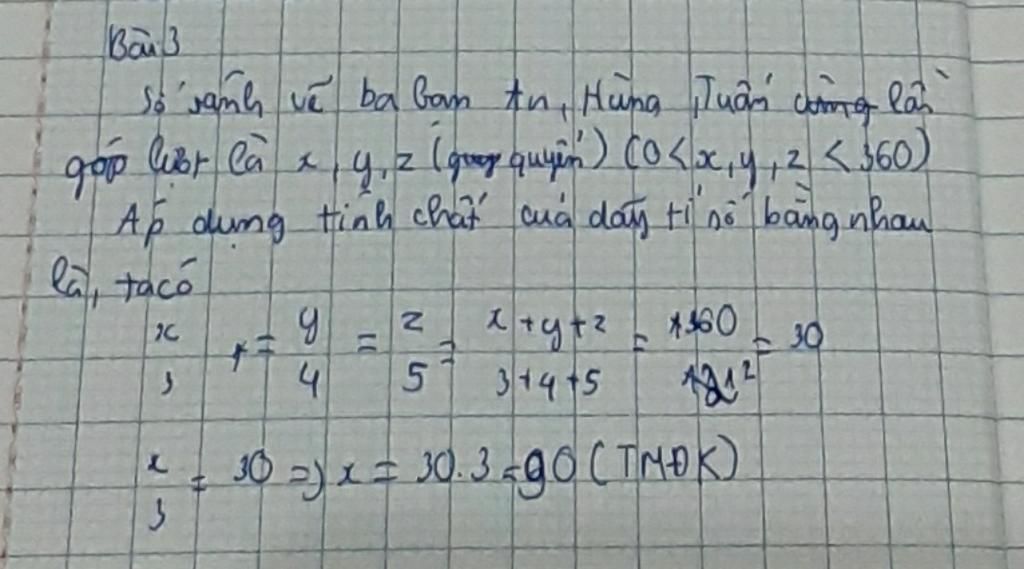 Bài 3
Số sánh vẽ ba bạn An, Hùng, Tuấn lần
góp lượt là x, y, z (quyển) (0 < x, y, z < 360)
Áp dụng tính chất cuả dãy tỉ số bằng nhau
là, ta có
x/3 = y/4 = z/5 = (x + y + z)/(3 + 4 + 5) = 360/12 = 30
x/3 = 30 => x = 30.3 = 90 (TMĐK)